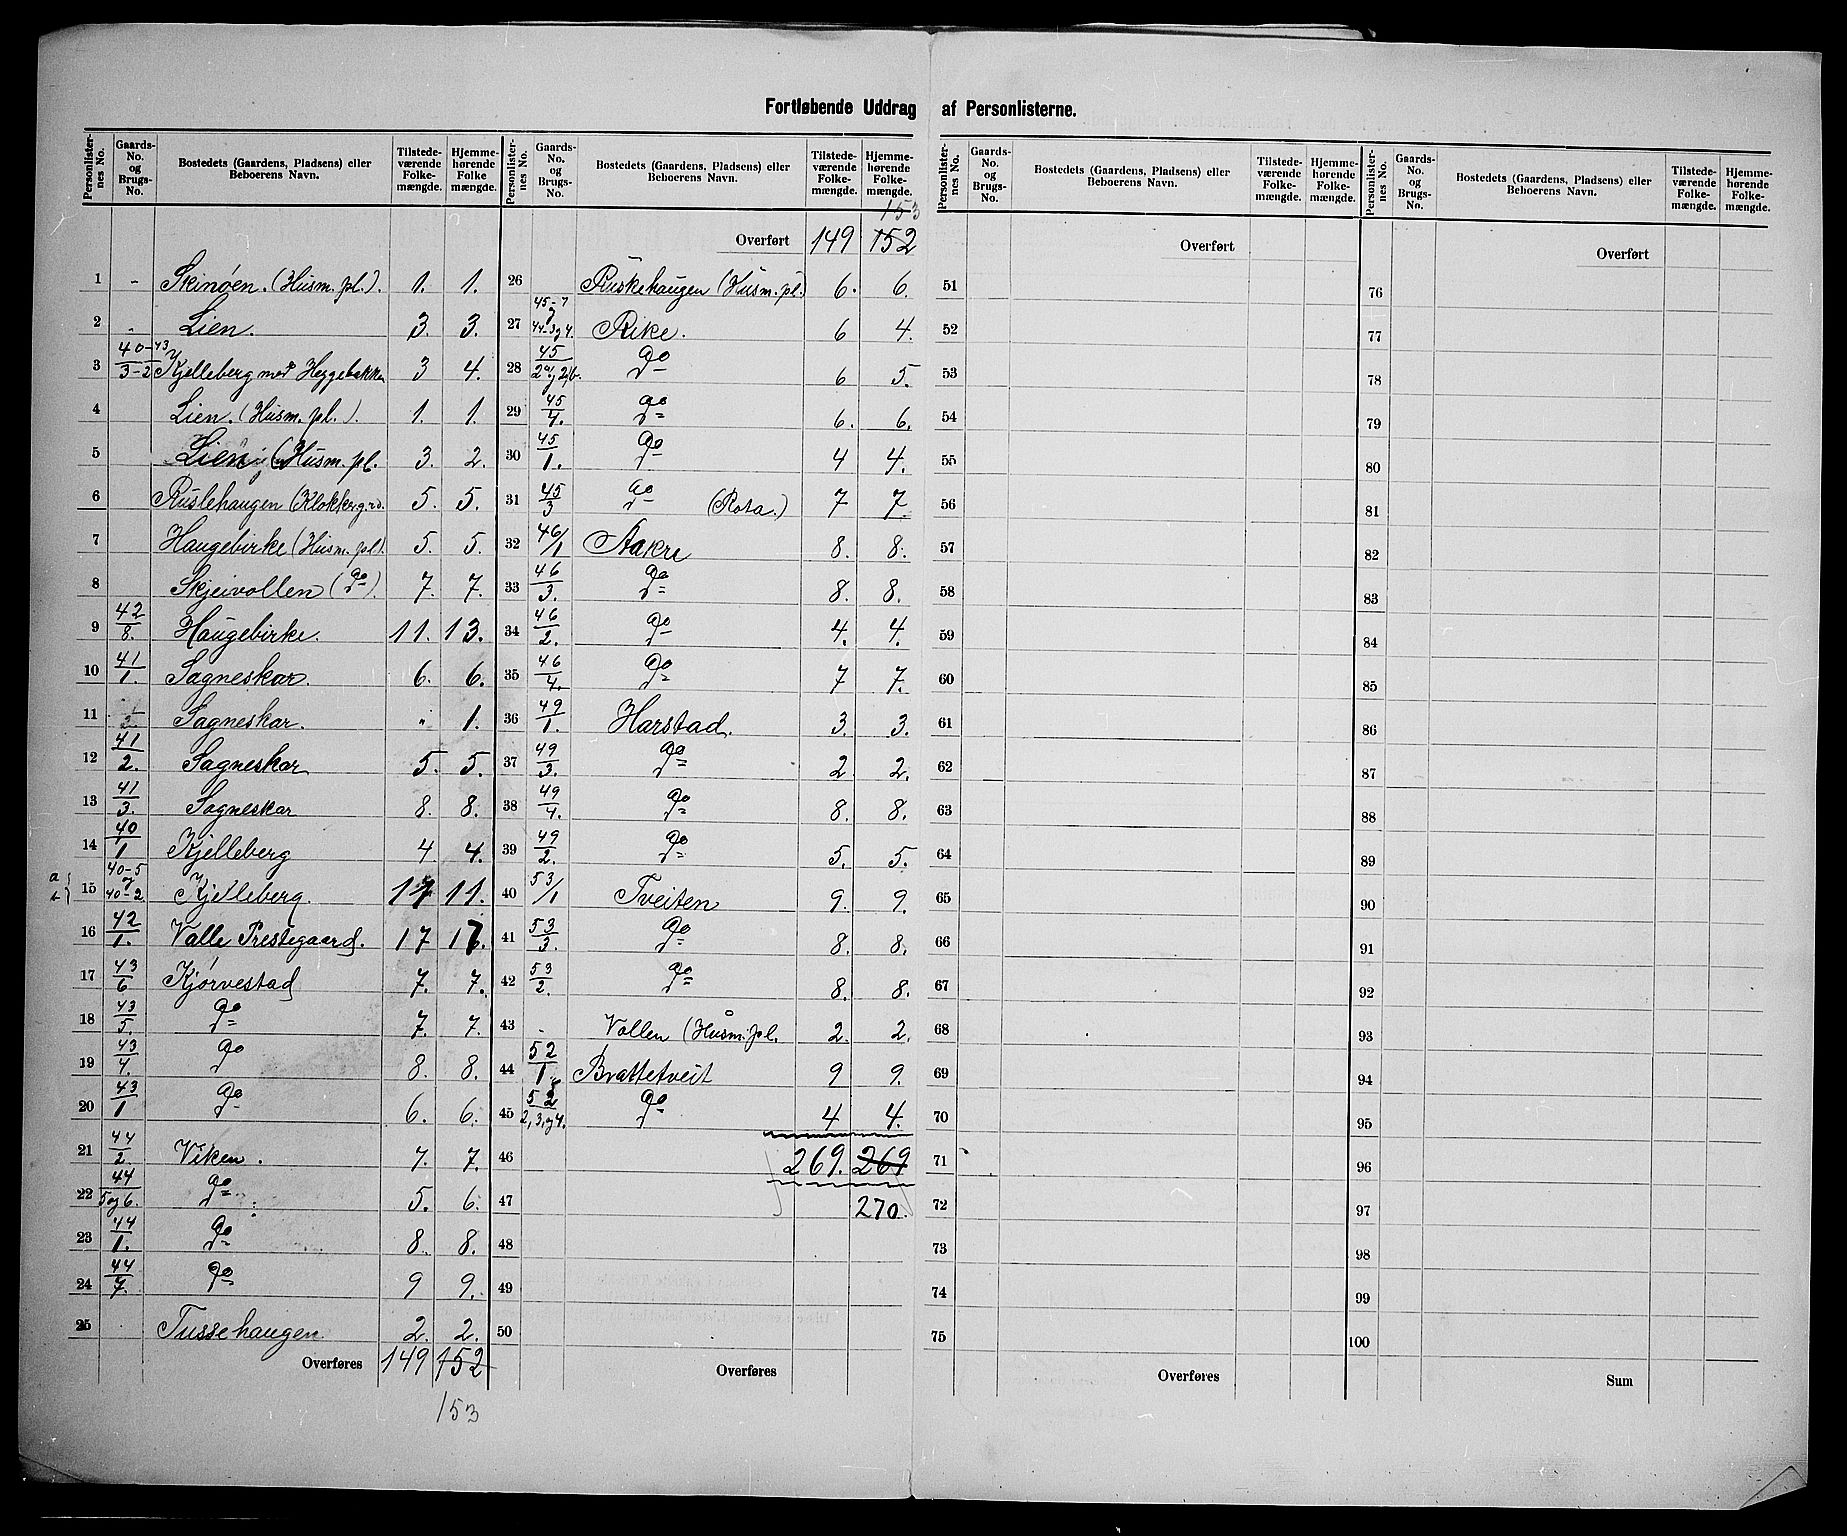 Fortløbende Uddrag af Personlisterne.
Personlister-nes No. | Gaards-No. og Brugs-No. | Bostedets (Gaardens, Pladsens) eller Beboerens Navn. | Tilstede-værende Folke-mængde. | Hjemme-hørende Folke mængde.
1 | - | Skinøen. (Husm. pl.). | 1. | 1.
2 | - | Lien. | 3. | 3.
3 | 40-43 3-2 | Kjelleberg med Heggebakken | 3 | 4.
4 | Lien. (Husm. pl.). | 1. | 1.
5 | Lien (Husm. pl. | 3. | 2.
6 | Ruslehaugen (Klokkerg.rd. | 5. | 5.
7 | Haugebirke (Husm. pl.). | 5. | 5.
8 | Skjeivollen (do). | 7. | 7.
9 | 42/8. | Haugebirke. | 11. | 13.
10 | 41/1. | Sagneskar. | 6. | 6.
11 | Sagneskar. | " | 1.
12 | 41/2. | Sagneskar | 5. | 5.
13 | 41/3. | Sagneskar | 8. | 8.
14 | 40/1 | Kjelleberg | 4 | 4.
a b } 15 | 40-5 og 40-2 | Kjelleberg. | 11 | 11.
16 | 42/1. | Valle Prestegaard. | 17 | 17.
17 | 43/6 | Kjørvestad | 7. | 7.
18 | 43/5. | do | 7. | 7.
19 | 43/4. | do | 8. | 8.
20 | 43/1 | do | 6. | 6.
21 | 44/2 | Viken. | 7. | 7.
22 | 44/5 og 6. | do | 5. | 6.
23 | 44/1. | do | 8. | 8.
24 | 44/7. | do | 9 | 9.
25 | Tussehaugen | 2. | 2.
Overføres | 149 | 152
153
Personlister-nes No. | Gaards-No. og Brugs-No. | Bostedets (Gaardens, Pladsens) eller Beboerens Navn. | Tilstede-værende Folke-mængde. | Hjemme-hørende Folke-mængde.
153
Overført | 149 | 152
26 | Ruskehaugen (Husm. pl.) | 6. | 6.
27 | 45-7 og 44-3 og 4. | Rike. | 6 | 4.
28 | 45/2a og 2b. | do | 6 | 5.
29 | 45/4. | do | 6. | 6.
30 | 45/1. | do | 4 | 4.
31 | 45/3 | do (Rota.) | 7 | 7.
32 | 46/1 | Aakre | 8. | 8.
33 | 46/3. | do | 8. | 8.
34 | 46/2. | do | 4. | 4.
35 | 46/4. | do | 7 | 7.
36 | 49/1. | Harstad. | 3. | 3.
37 | 49/3. | do | 2 | 2.
38 | 49/4. | do | 8. | 8.
39 | 49/2. | do | 5. | 5.
40 | 53/1 | Tveiten | 9. | 9.
41 | 53/3. | do | 8. | 8.
42 | 53/2. | do | 8. | 8.
43 | - | Vollen (Husm. pl. | 2. | 2.
44 | 52/1. | Brattetveit | 9 | 9.
45 | 52/2, 3, og 4. | do | 4 | 4.
46 | 269. | 269
47 | 270.
48
49
50
Overføres
Personlister-nes No. | Gaards-No. og Brugs-No. | Bostedets (Gaardens, Pladsens) eller Beboerens Navn. | Tilstede-værende Folke-mængde. | Hjemme-hørende Folke-mængde.
Overført
51
52
53
54
55
56
57
58
59
60
61
62
63
64
65
66
67
68
69
70
71
72
73
74
75
Overføres
Personlister-nes No. | Gaards-No. og Brugs-No. | Bostedets (Gaardens, Pladsens) eller Beboerens Navn. | Tilstede-værende Folke-mængde. | Hjemme-hørende Folke-mængde.
Overført
76
77
78
79
80
81
82
83
84
85
86
87
88
89
90
91
92
93
94
95
96
97
98
99
100
Sum